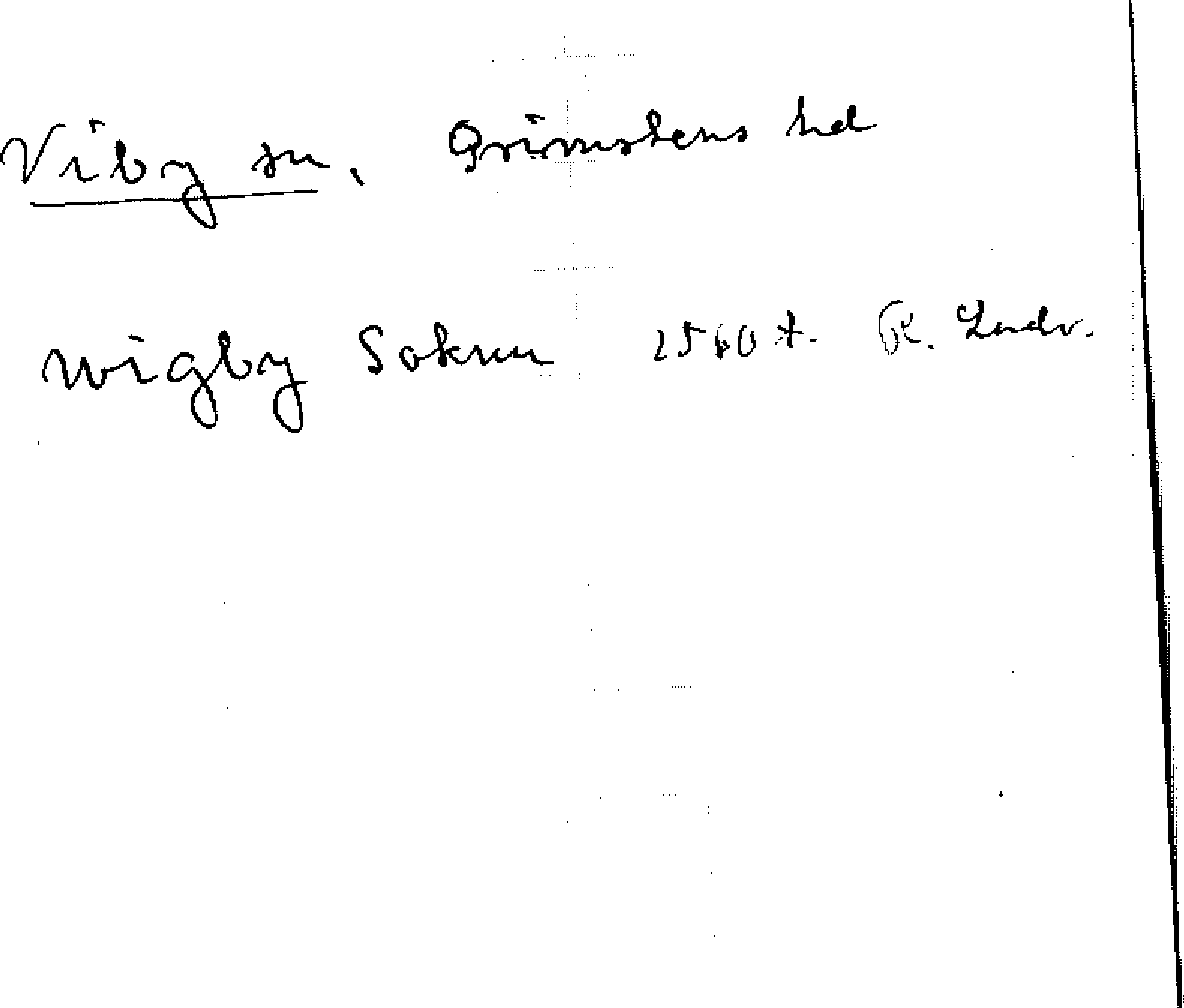 Viby sn, Grimstens hd
wigby Soknn 1560 t. R. Landr.